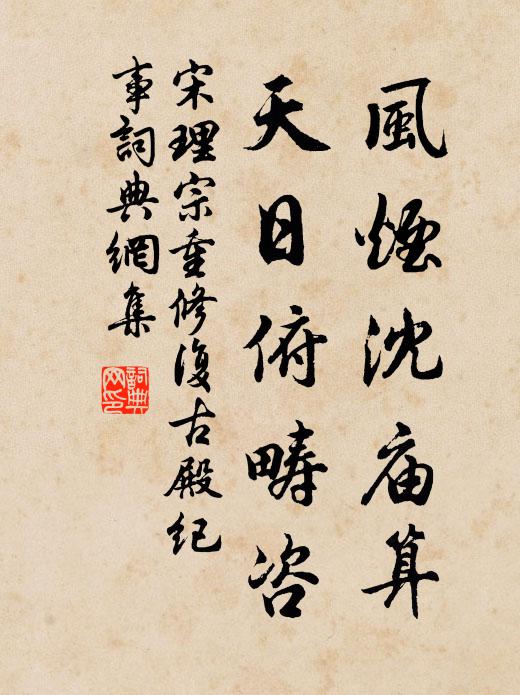 風煙沈庙算
天日俯疇咨
宋理宗重修復古殿紀
事詞典網集
詞典
网印